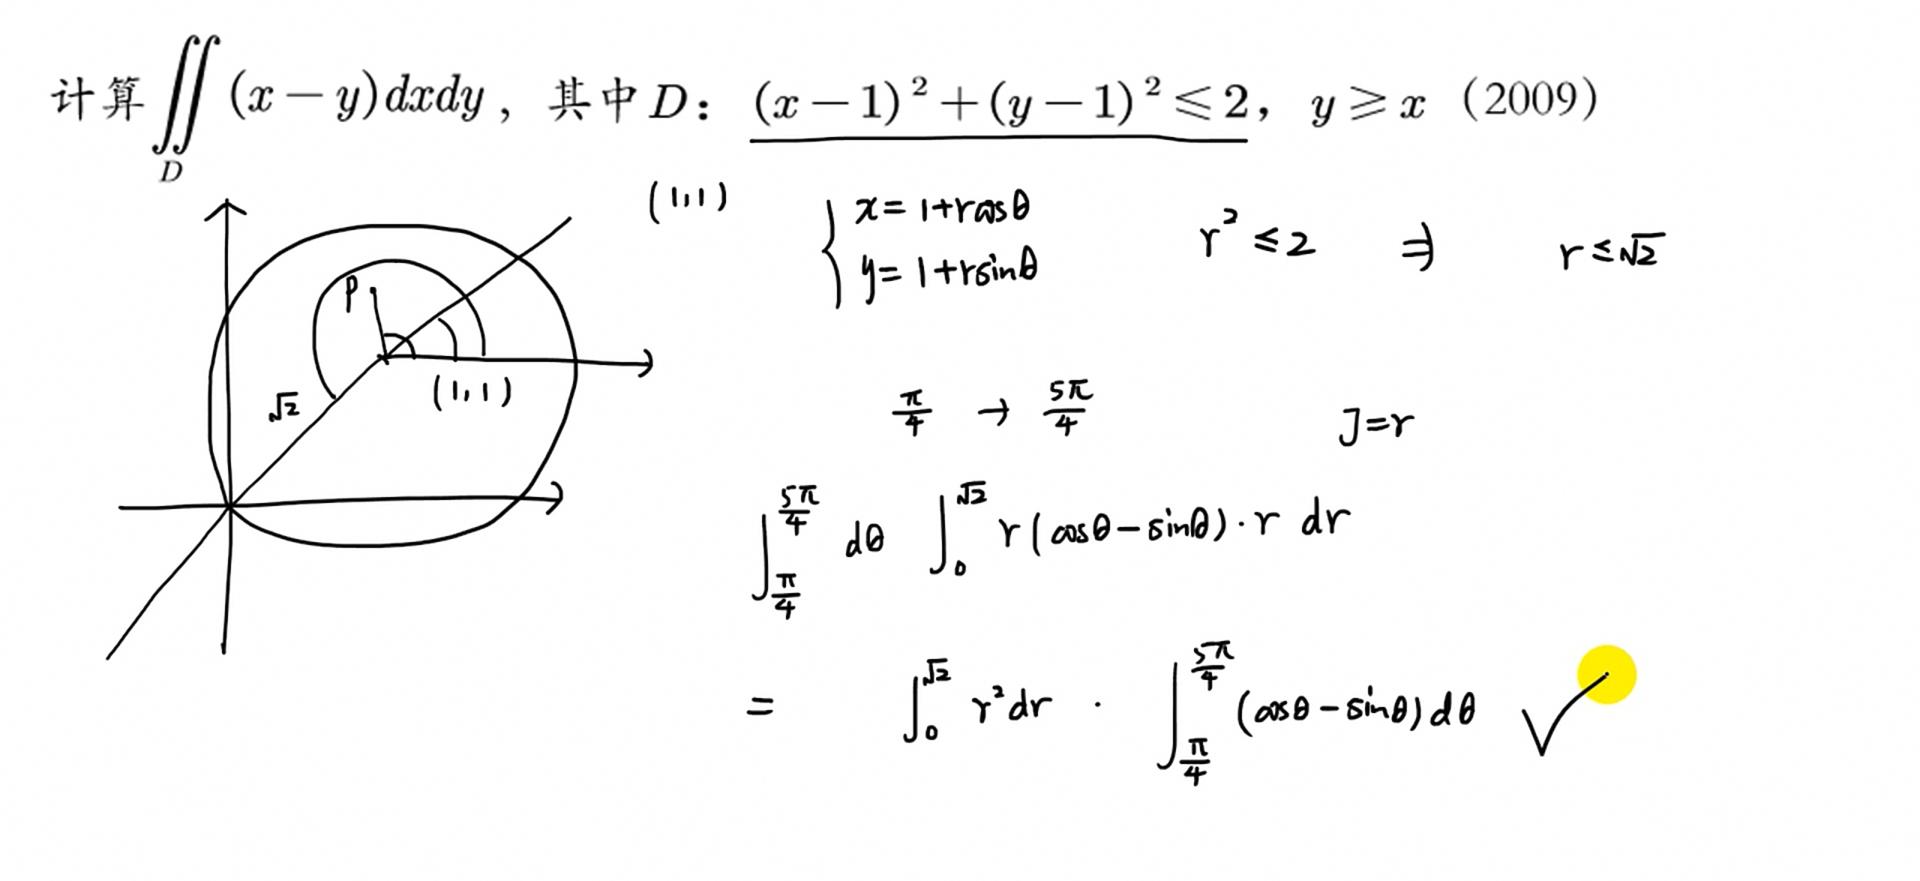 计算∬_D (x-y)dxdy，其中D：(x-1)²+(y-1)²≤2，y≥x（2009）
(1,1)
{ x=1+rcosθ
y=1+rsinθ
r²≤2 ⇒ r≤√2
P
√2
(1,1)
π/4 → 5π/4 J=r
∫_{π/4}^{5π/4} dθ ∫_0^{√2} r(cosθ-sinθ)·r dr
= ∫_0^{√2} r²dr · ∫_{π/4}^{5π/4} (cosθ-sinθ)dθ √